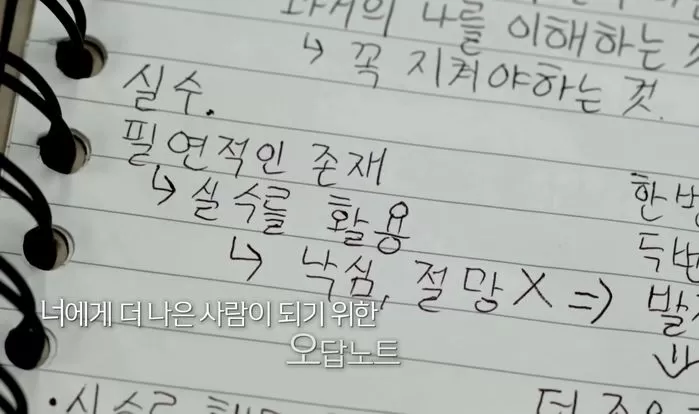 과거의 나를 이해하는 것
↳ 꼭 지켜야하는 것.
실수.
필연적인 존재
↳ 실수를 활용
한번
두번
↳ 낙심, 절망 X ⇒
너에게 더 나은 사람이 되기 위한
오답노트